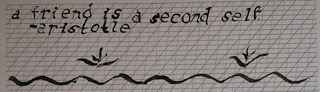 a friend is a second self
-aristotle